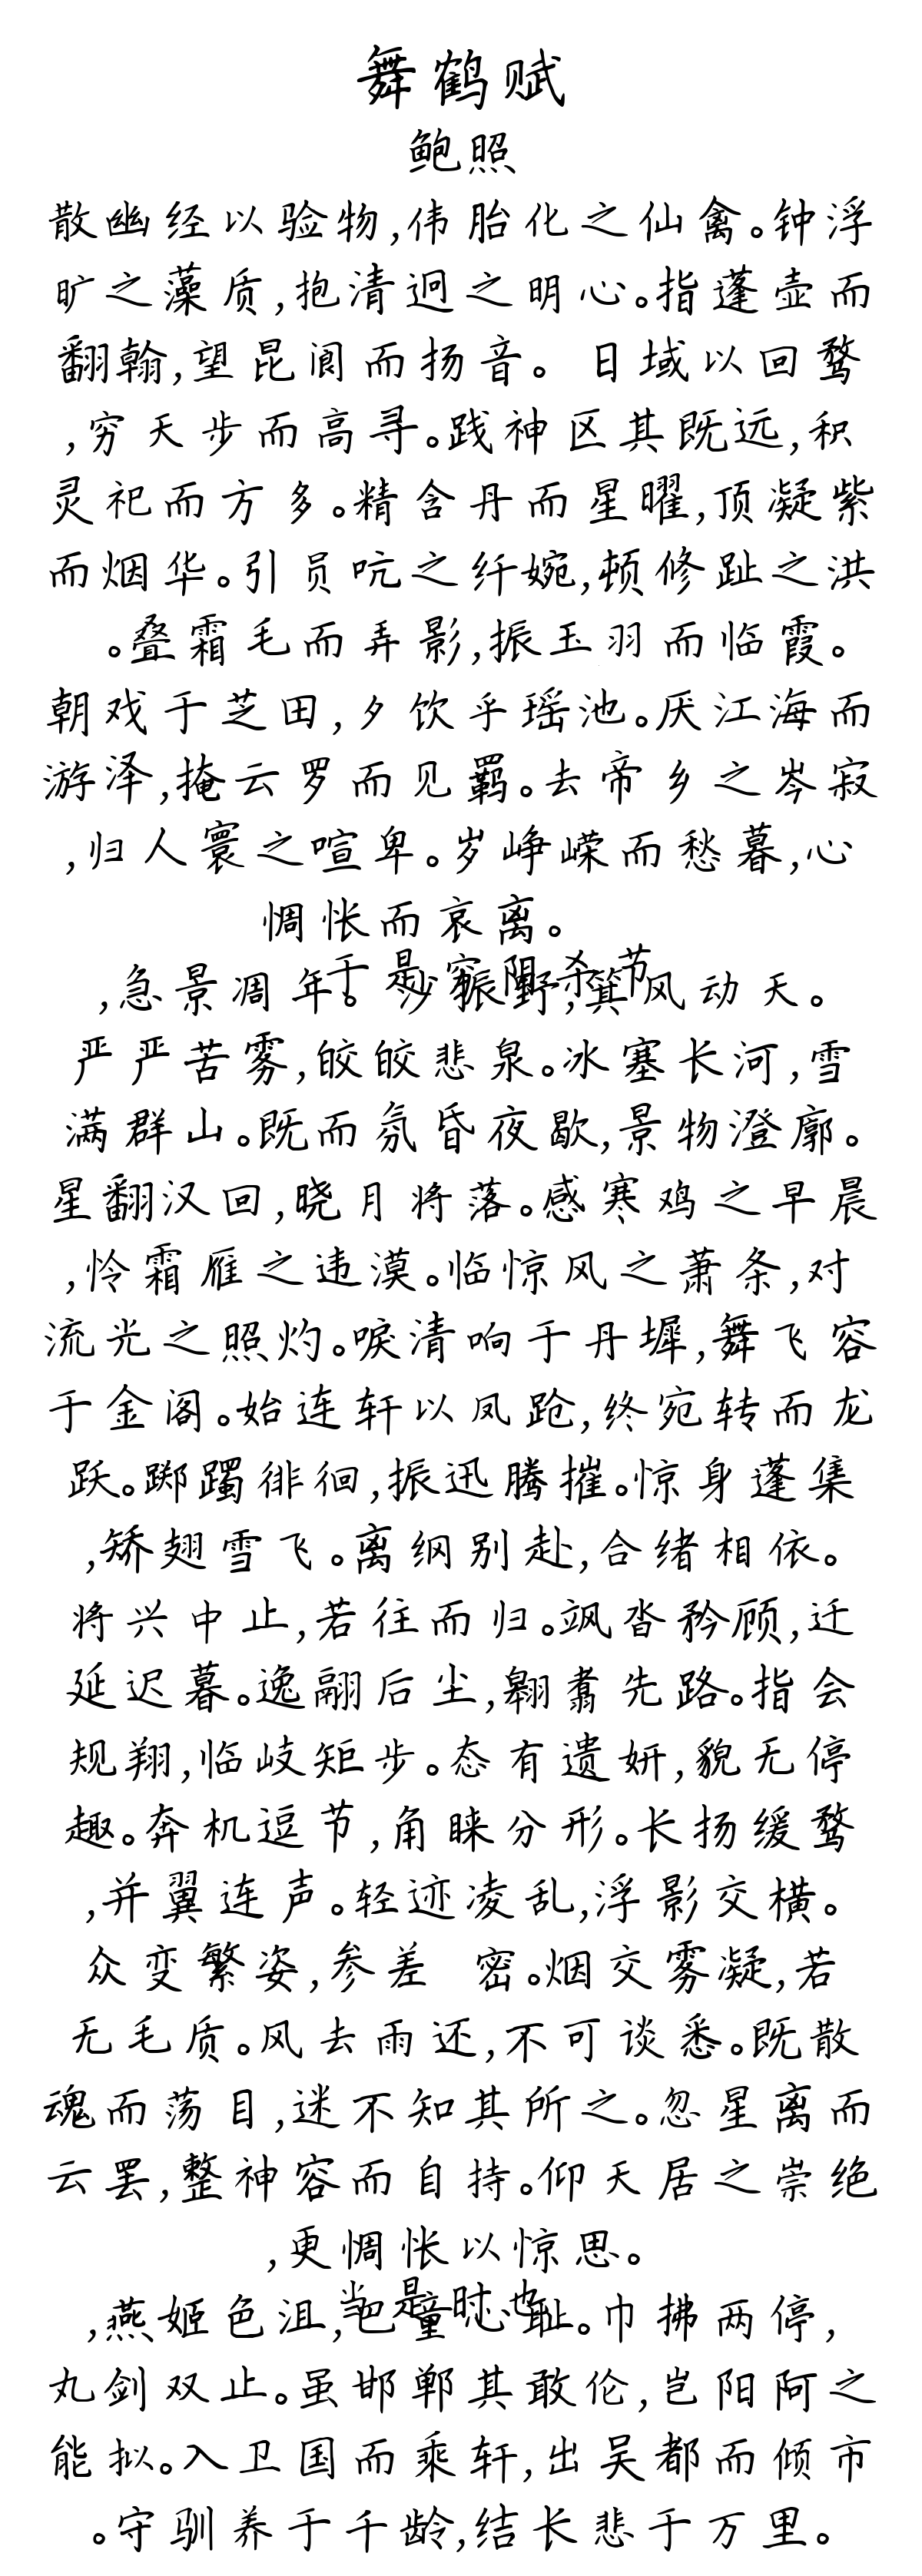 舞鹤赋
鲍照
散幽经以验物,伟胎化之仙禽。钟浮
旷之藻质,抱清迥之明心。指蓬壶而
翻翰,望昆阆而扬音。 日域以回鹜
,穷天步而高寻。践神区其既远,积
灵祀而方多。精含丹而星曜,顶凝紫
而烟华。引员吭之纤婉,顿修趾之洪
。叠霜毛而弄影,振玉羽而临霞。
朝戏于芝田,夕饮乎瑶池。厌江海而
游泽,掩云罗而见羁。去帝乡之岑寂
,归人寰之喧卑。岁峥嵘而愁暮,心
惆怅而哀离。
于是穷阴杀节
,急景凋年。 沙振野,箕风动天。
严严苦雾,皎皎悲泉。冰塞长河,雪
满群山。既而氛昏夜歇,景物澄廓。
星翻汉回,晓月将落。感寒鸡之早晨
,怜霜雁之违漠。临惊风之萧条,对
流光之照灼。唳清响于丹墀,舞飞容
于金阁。始连轩以凤跄,终宛转而龙
跃。踯躅徘徊,振迅腾摧。惊身蓬集
,矫翅雪飞。离纲别赴,合绪相依。
将兴中止,若往而归。飒沓矜顾,迁
延迟暮。逸翮后尘,翱翥先路。指会
规翔,临岐矩步。态有遗妍,貌无停
趣。奔机逗节,角睐分形。长扬缓鹜
,并翼连声。轻迹凌乱,浮影交横。
众变繁姿,参差 密。烟交雾凝,若
无毛质。风去雨还,不可谈悉。既散
魂而荡目,迷不知其所之。忽星离而
云罢,整神容而自持。仰天居之崇绝
,更惆怅以惊思。
当是时也
,燕姬色沮,巴童心耻。巾拂两停,
丸剑双止。虽邯郸其敢伦,岂阳阿之
能拟。入卫国而乘轩,出吴都而倾市
。守驯养于千龄,结长悲于万里。